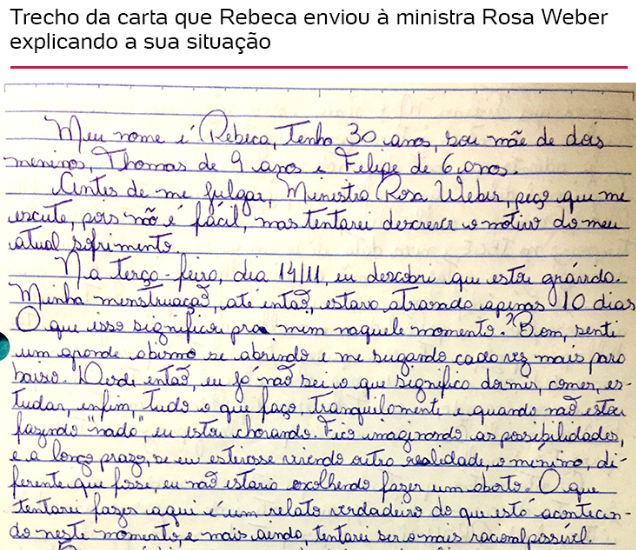 Trecho da carta que Rebeca enviou à ministra Rosa Weber
explicando a sua situação
Meu nome é Rebeca, Tenho 30 anos, sou mãe de dois
meninos, Thomas de 9 anos e Felipe de 6 anos.
Antes de me julgar, Ministra Rosa Weber, peço que me
escute, pois não é fácil, mas tentarei descrever o motivo do meu
atual sofrimento.
Na terça-feira, dia 14/11, eu descobri que estou grávida.
Minha menstruação, até então, estava atrasada apenas 10 dias
O que isso significou pra mim naquele momento? Bom, senti
um grande abismo se abrindo e me sugando cada vez mais para
baixo. Desde então, eu já não sei o que significa dormir, comer, es-
tudar, enfim, tudo o que faço, tranquilamente e quando não estou
fazendo nada, eu estou chorando. Fico imaginando as possibilidades,
e a longo prazo, se eu estivesse vivendo outra realidade, o mínimo, di-
ferente que fosse, eu não estaria escolhendo fazer um aborto. O que
tentarei fazer aqui é um relato verdadeiro do que está acontecen-
do neste momento e mais ainda, tentarei ser o mais racional possível.